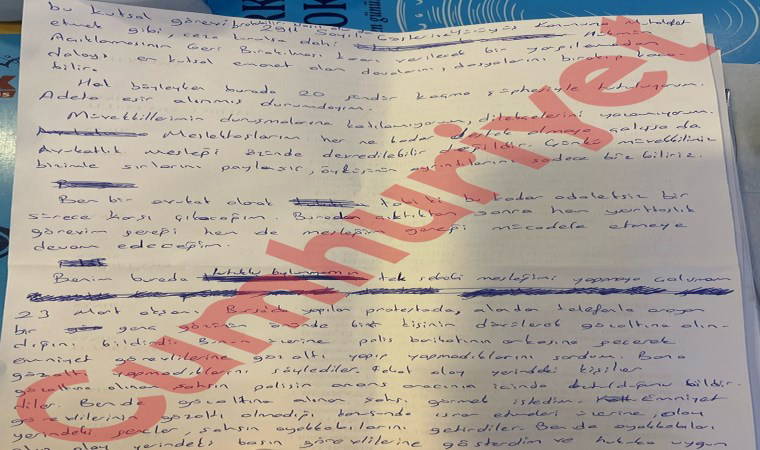 bu kutsal görevi bırakabilir
etmek gibi, ceza kanunda dahi 2911 Sayılı Gösteri Yürüyüş Kanununa Muhalefet
Açıklamasının Geri Bırakılması kararı verilecek bir yargılamadan Hükmün
dolayı en kutsal emanet olan davalarını, dosyalarını bırakıp kaça-
bilir.
Hal böyleyken burada 20 gündür kaçma şüphesiyle tutuluyorum.
Adeta esir alınmış durumdayım.
Müvekkillerimin duruşmalarına katılamıyorum, dilekçelerini yazamıyorum.
Meslektaşlarım her ne kadar destek olmaya çalışsa da
Avukatlık mesleği özünde devredilebilir değildir. Çünkü müvekkiliniz
bizimle sırlarını paylaşır, öyküsünün ayrıntılarını sadece biz biliriz.
Ben bir avukat olarak tabi ki bu kadar adaletsiz bir
sürece karşı çıkacağım. Buradan çıktıktan sonra hem yurttaşlık
görevim gereği hem de mesleğim gereği mücadele etmeye
devam edeceğim.
Benim burada tutuklu bulunmamın tek sebebi mesleğimi yapmaya çalışmam
23 Mart akşamı Bursa'da yapılan protestoda, alandan telefonla arayan
bir genç gözünün önünde bir kişinin darp edilerek gözaltına alın-
dığını bildirdi. Bunun üzerine polis barikatının arkasına geçerek
emniyet görevlilerine gözaltı yapıp yapmadıklarını sordum. Bana
gözaltı yapmadıklarını söylediler. Fakat olay yerindeki kişiler
gözaltına alınan şahsın polisin anons aracının içinde tutulduğunu bildir-
diler. Ben de gözaltına alınan şahsı görmek istedim. Emniyet
görevlilerinin gözaltı olmadığı konusunda ısrar etmeleri üzerine, olay
yerindeki gençler, şahsın ayakkabılarını getirdiler. Ben de ayakkabıları
olay yerindeki basın görevlilerine gösterdim ve hukuka uygun
Cumhuriyet